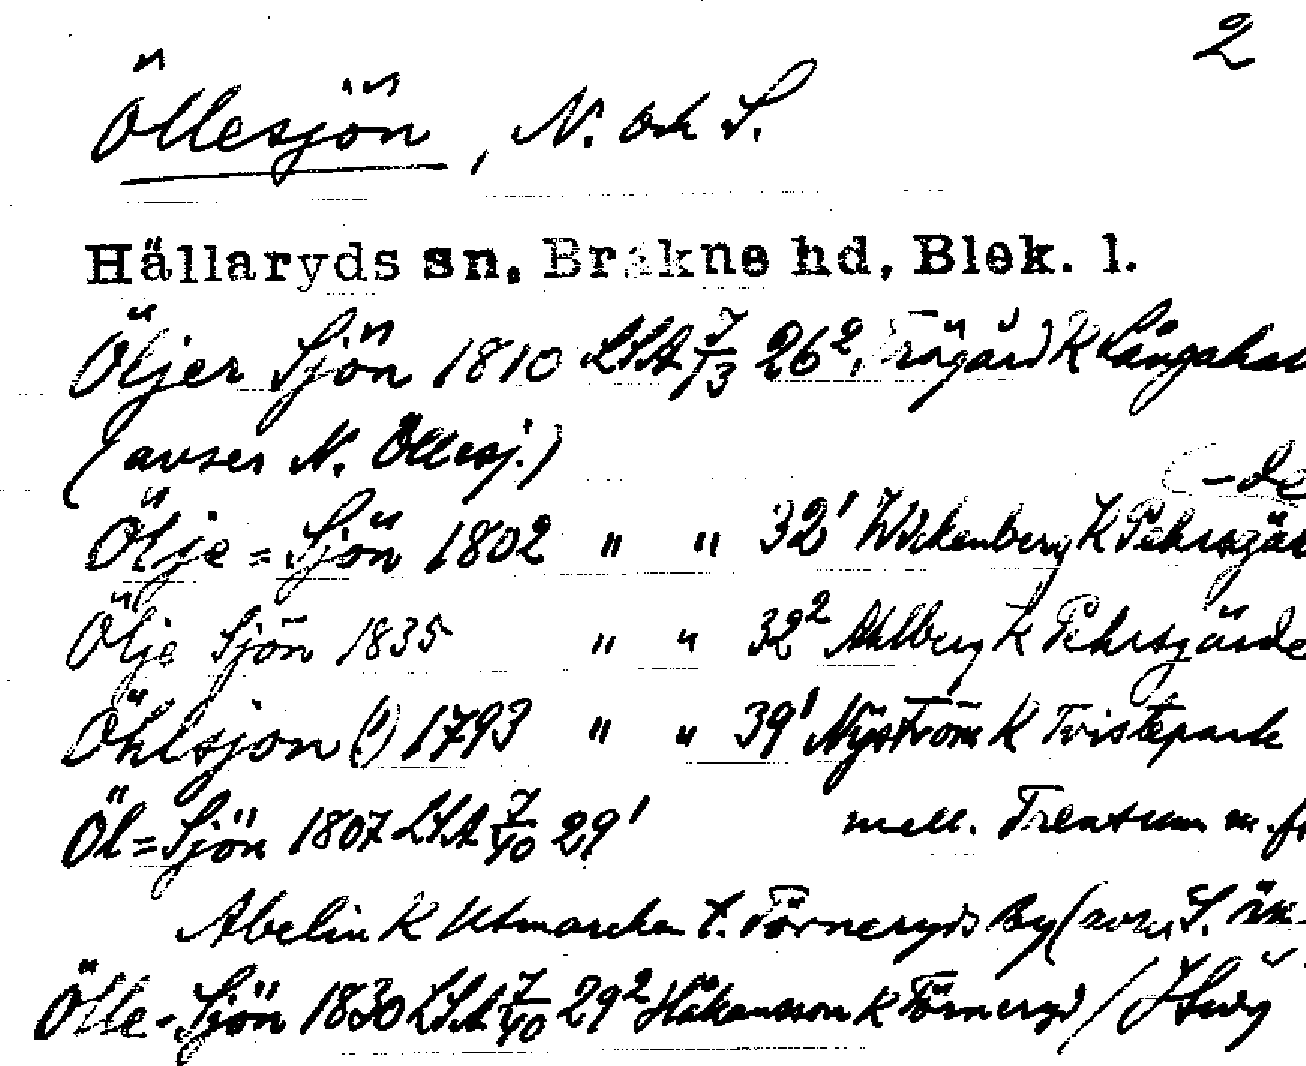 2
Öllesjön, N. och S.
Hällaryds sn, Bräkne hd, Blek. l.
Öljer Sjön 1810 LSA 7/13 26², Trägård K Långahal
(avser N. Öllesj.)
-de
Ölje = Sjön 1802 " " 32¹ Wickenberg K Pehrsgär
Ölje Sjön 1835 " " 32² Ahlberg K Pehrsgärde
Öhlsjon (!) 1793 " " 39¹ Nyström K Tvistepark
Öl = Sjön 1807 LSA 7/40 29¹ mell. Trensum m. fl
Abelin K Utmarcken t. Törneryds By (sov. S. än-
Ölle-Sjön 1830 LSA 7/40 29² Håkansson K Törneryd /